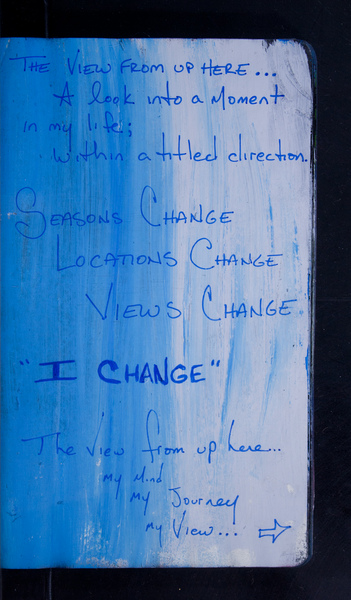 THE VIEW FROM UP HERE...
A look into a Moment
in my life;
within a titled direction.
SEASONS CHANGE
LOCATIONS CHANGE
VIEWS CHANGE
"I CHANGE"
The View from up here...
My Mind
My Journey
My View...